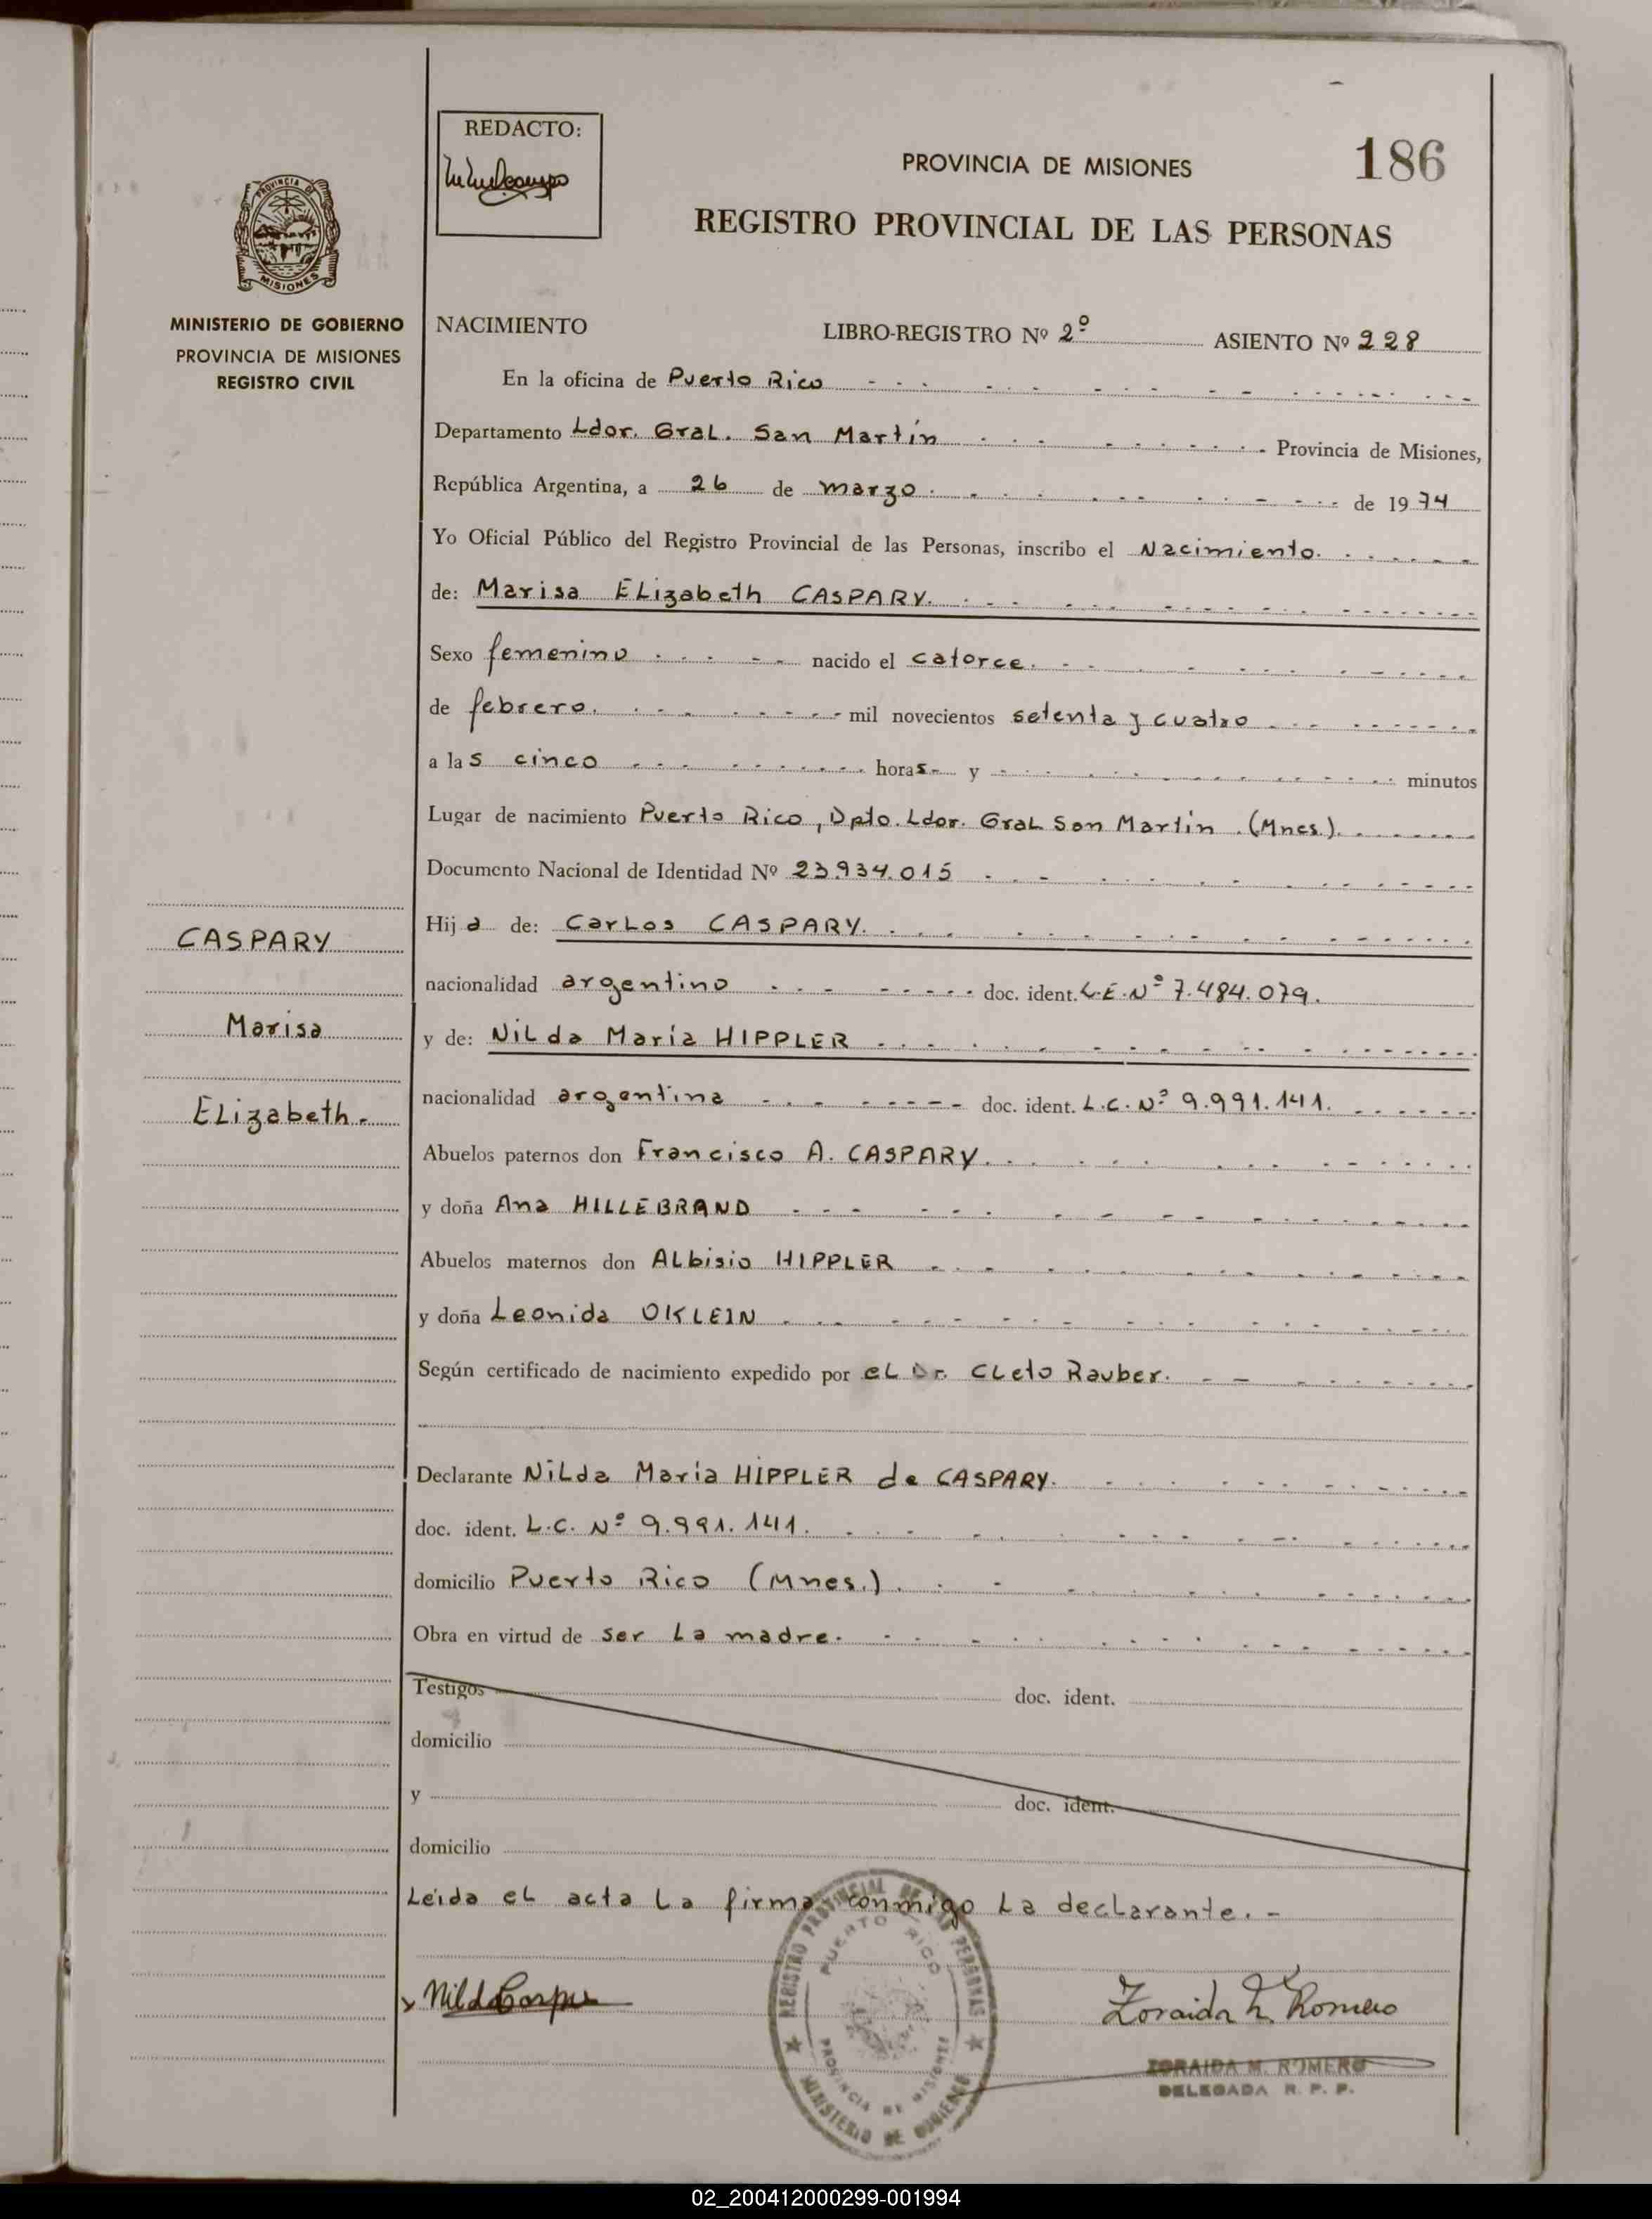 REDACTO:
PROVINCIA DE MISIONES
186
REGISTRO PROVINCIAL DE LAS PERSONAS
PROVINCIA DE
MISIONES
MINISTERIO DE GOBIERNO
PROVINCIA DE MISIONES
REGISTRO CIVIL
NACIMIENTO LIBRO-REGISTRO Nº 2º ASIENTO Nº 228
En la oficina de Puerto Rico
Departamento Ldor. Gral. San Martín Provincia de Misiones,
República Argentina, a 26 de marzo de 1974
Yo Oficial Público del Registro Provincial de las Personas, inscribo el Nacimiento.
de: Marisa Elizabeth CASPARY.
Sexo femenino nacido el catorce.
de febrero. mil novecientos setenta y cuatro
a las cinco horas y minutos
Lugar de nacimiento Puerto Rico, Dpto. Ldor. Gral San Martín (Mnes.).
Documento Nacional de Identidad Nº 23.934.015
Hija de: Carlos CASPARY.
nacionalidad argentino doc. ident. L.E. Nº 7.484.079.
y de: Nilda María HIPPLER
nacionalidad argentina doc. ident. L.C. Nº 9.991.141.
Abuelos paternos don Francisco A. CASPARY.
y doña Ana HILLEBRAND
Abuelos maternos don Albisio HIPPLER
y doña Leonida OKLEIN
Según certificado de nacimiento expedido por el Dr. Cleto Rauber.
Declarante Nilda María HIPPLER de CASPARY.
doc. ident. L.C. Nº 9.991.141.
domicilio Puerto Rico (Mnes.).
Obra en virtud de ser la madre.
Testigos doc. ident.
domicilio
y doc. ident.
domicilio
Leída el acta la firma conmigo la declarante.-
CASPARY
Marisa
Elizabeth.-
REGISTRO PROVINCIAL DE LAS PERSONAS
PUERTO RICO
PROVINCIA DE MISIONES
MINISTERIO DE GOBIERNO
Zoraida M. Romero
ZORAIDA M. ROMERO
DELEGADA R. P. P.
02_200412000299-001994